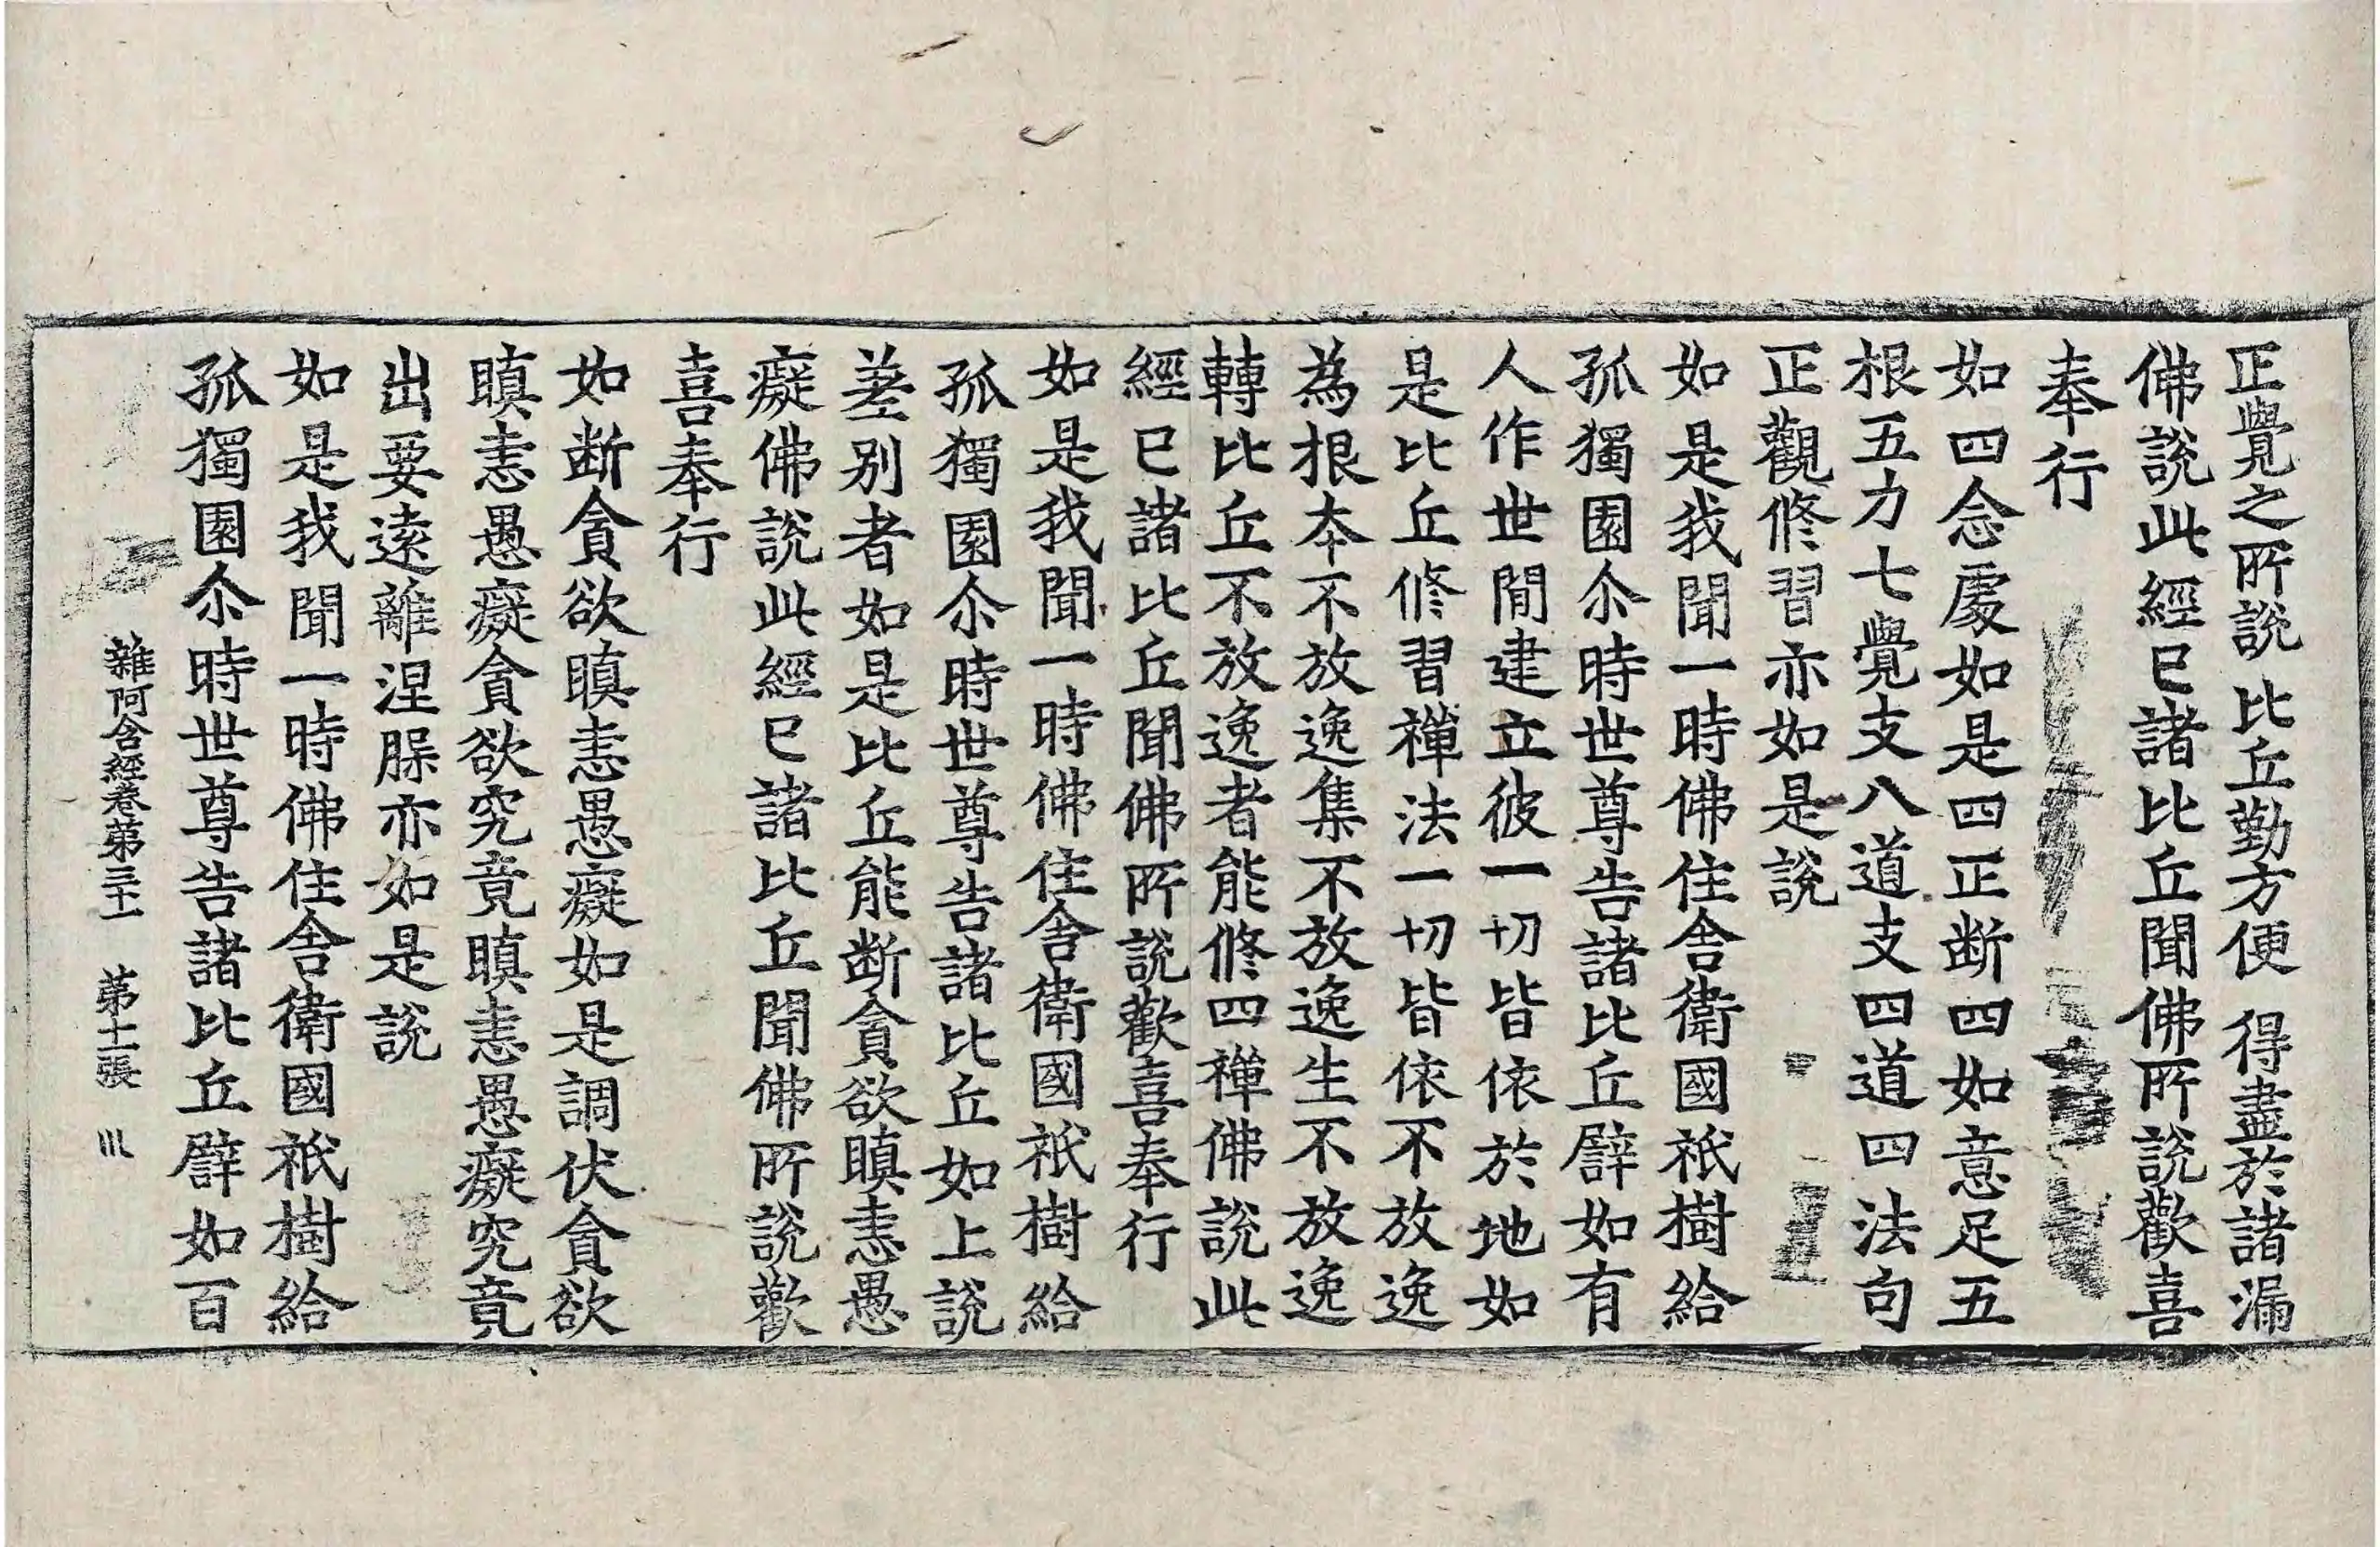 正覺之所說比丘勤方便得盡於諸漏
佛說此經已諸比丘聞佛所說歡喜
奉行
如四念處如是四正斷四如意足五
根五力七覺支八道支四道四法句
正觀修習亦如是說
如是我聞一時佛住舍衛國祇樹給
孤獨園尒時世尊告諸比丘譬如有
人作世閒建立彼一切皆依於地如
是比丘修習禪法一切皆依不放逸
為根本不放逸集不放逸生不放逸
轉比丘不放逸者能修四禪佛說此
經已諸比丘聞佛所說歡喜奉行
如是我聞一時佛住舍衛國祇樹給
孤獨園尒時世尊告諸比丘如上說
差別者如是比丘能斷貪欲瞋恚愚
癡佛說此經已諸比丘聞佛所說歡
喜奉行
如斷貪欲瞋恚愚癡如是調伏貪欲
瞋恚愚癡貪欲究竟瞋恚愚癡究竟
出要遠離涅槃亦如是說
如是我聞一時佛住舍衛國祇樹給
孤獨園尒時世尊告諸比丘譬如百
雜阿含經卷第三十一 第十二張